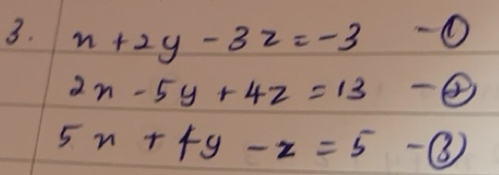 3. x + 2y - 3z = -3 - ①
2x - 5y + 4z = 13 - ②
5x + 4y - z = 5 - ③